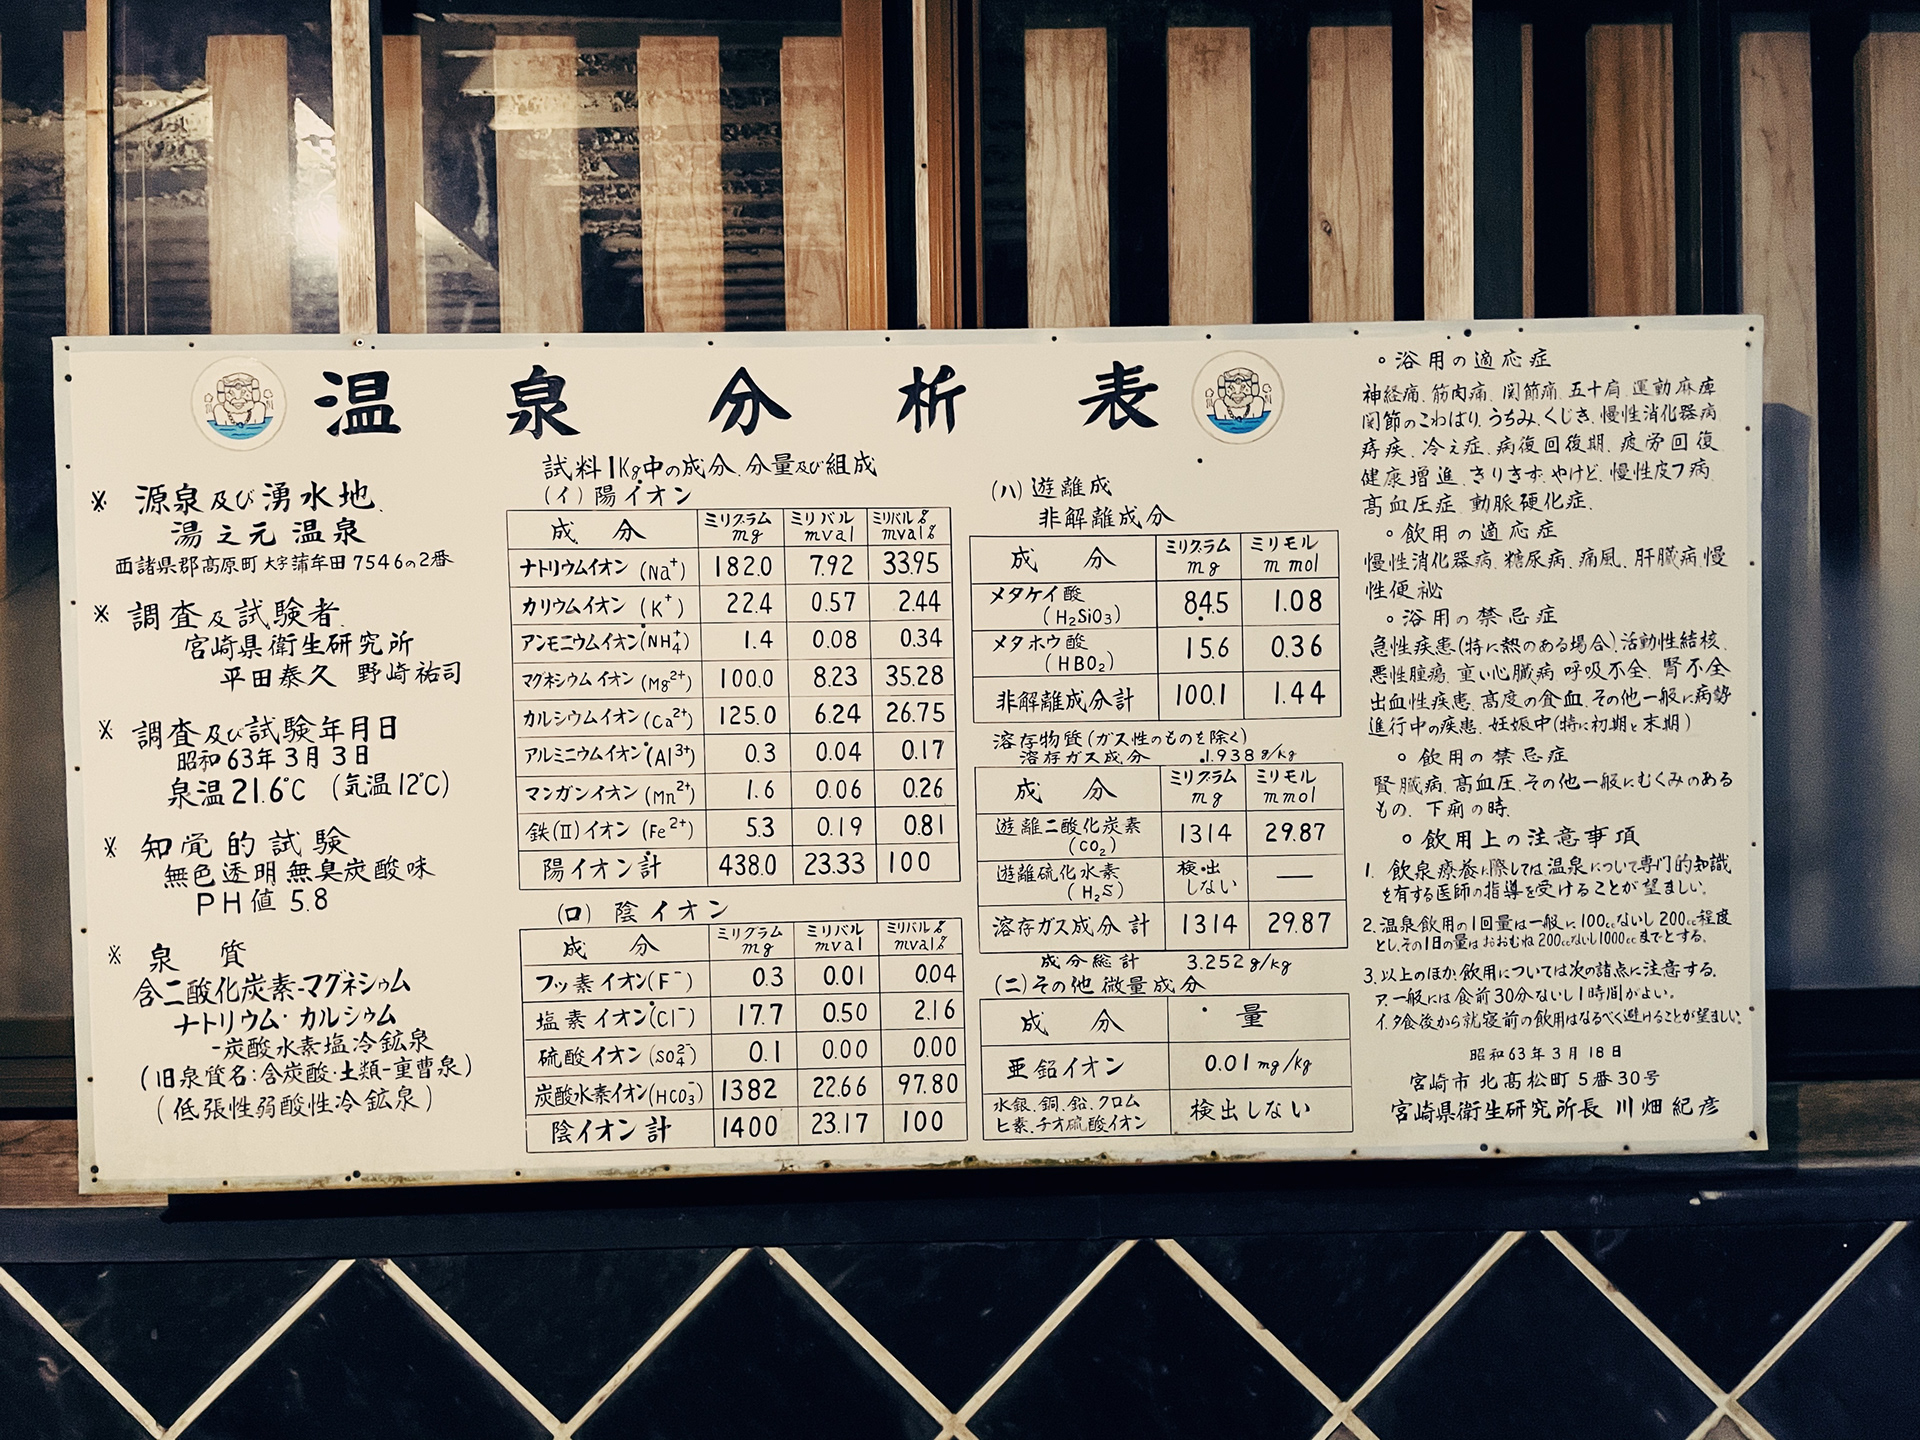 温泉分析表
※ 源泉及び湧水地.
湯之元温泉
西諸県郡高原町大字蒲牟田7546の2番
※ 調査及試験者.
宮崎県衛生研究所
平田泰久 野崎祐司
※ 調査及び試験年月日
昭和63年3月3日
泉温21.6℃ (気温12℃)
※ 知覚的試験
無色透明無臭炭酸味
PH値 5.8
※ 泉質
含二酸化炭素-マグネシゥム
ナトリウム・カルシゥム
-炭酸水素塩冷鉱泉
(旧泉質名:含炭酸・土類-重曹泉)
(低張性弱酸性冷鉱泉)
試料1Kg中の成分、分量及び組成
(イ)陽イオン
成分 ミリグラム mg ミリバル mval ミリバル% mval%
ナトリウムイオン(Na⁺) 182.0 7.92 33.95
カリウムイオン(K⁺) 22.4 0.57 2.44
アンモニウムイオン(NH₄⁺) 1.4 0.08 0.34
マグネシウムイオン(Mg²⁺) 100.0 8.23 35.28
カルシウムイオン(Ca²⁺) 125.0 6.24 26.75
アルミニウムイオン(Al³⁺) 0.3 0.04 0.17
マンガンイオン(Mn²⁺) 1.6 0.06 0.26
鉄(II)イオン(Fe²⁺) 5.3 0.19 0.81
陽イオン計 438.0 23.33 100
(ロ)陰イオン
成分 ミリグラム mg ミリバル mval ミリバル% mval%
フッ素イオン(F⁻) 0.3 0.01 0.04
塩素イオン(Cl⁻) 17.7 0.50 2.16
硫酸イオン(SO₄²⁻) 0.1 0.00 0.00
炭酸水素イオン(HCO₃⁻) 1382 22.66 97.80
陰イオン計 1400 23.17 100
(ハ)遊離成
非解離成分
成分 ミリグラム mg ミリモル m mol
メタケイ酸 (H₂SiO₃) 84.5 1.08
メタホウ酸 (HBO₂) 15.6 0.36
非解離成分計 100.1 1.44
溶存物質(ガス性のものを除く)
溶存ガス成分 1.938g/kg
成分 ミリグラム mg ミリモル mmol
遊離二酸化炭素 (CO₂) 1314 29.87
遊離硫化水素 (H₂S) 検出しない —
溶存ガス成分計 1314 29.87
成分総計 3.252g/kg
(ニ)その他微量成分
成分 量
亜鉛イオン 0.01mg/kg
水銀、銅、鉛、クロム
ヒ素、チオ硫酸イオン 検出しない
○浴用の適応症
神経痛、筋肉痛、関節痛、五十肩、運動麻痺
関節のこわばり、うちみ、くじき、慢性消化器病
痔疾、冷え症、病後回復期、疲労回復
健康増進、きりきず、やけど、慢性皮フ病
高血圧症、動脈硬化症、
○飲用の適応症
慢性消化器病、糖尿病、痛風、肝臓病、慢
性便祕
○浴用の禁忌症
急性疾患(特に熱のある場合)、活動性結核、
悪性腫瘍、重い心臓病、呼吸不全、腎不全
出血性疾患、高度の貧血、その他一般に病勢
進行中の疾患、妊娠中(特に初期と末期)
○飲用の禁忌症
腎臓病、高血圧、その他一般にむくみのある
もの、下痢の時、
○飲用上の注意事項
1. 飲泉療養に際しては温泉について専門的知識
を有する医師の指導を受けることが望ましい。
2. 温泉飲用の1回量は一般に100ccないし200cc程度
とし、その1日の量はおおむね200ccないし1000ccまでとする。
3. 以上のほか、飲用については次の諸点に注意する。
ア.一般には食前30分ないし1時間がよい。
イ.夕食後から就寝前の飲用はなるべく避けることが望ましい。
昭和63年3月18日
宮崎市北高松町5番30号
宮崎県衛生研究所長 川畑紀彦